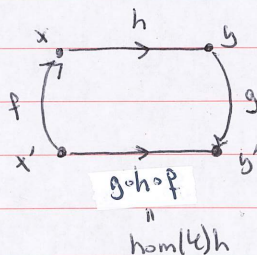 h
x y
f g
x' y'
g∘h∘f
॥
hom(4)h